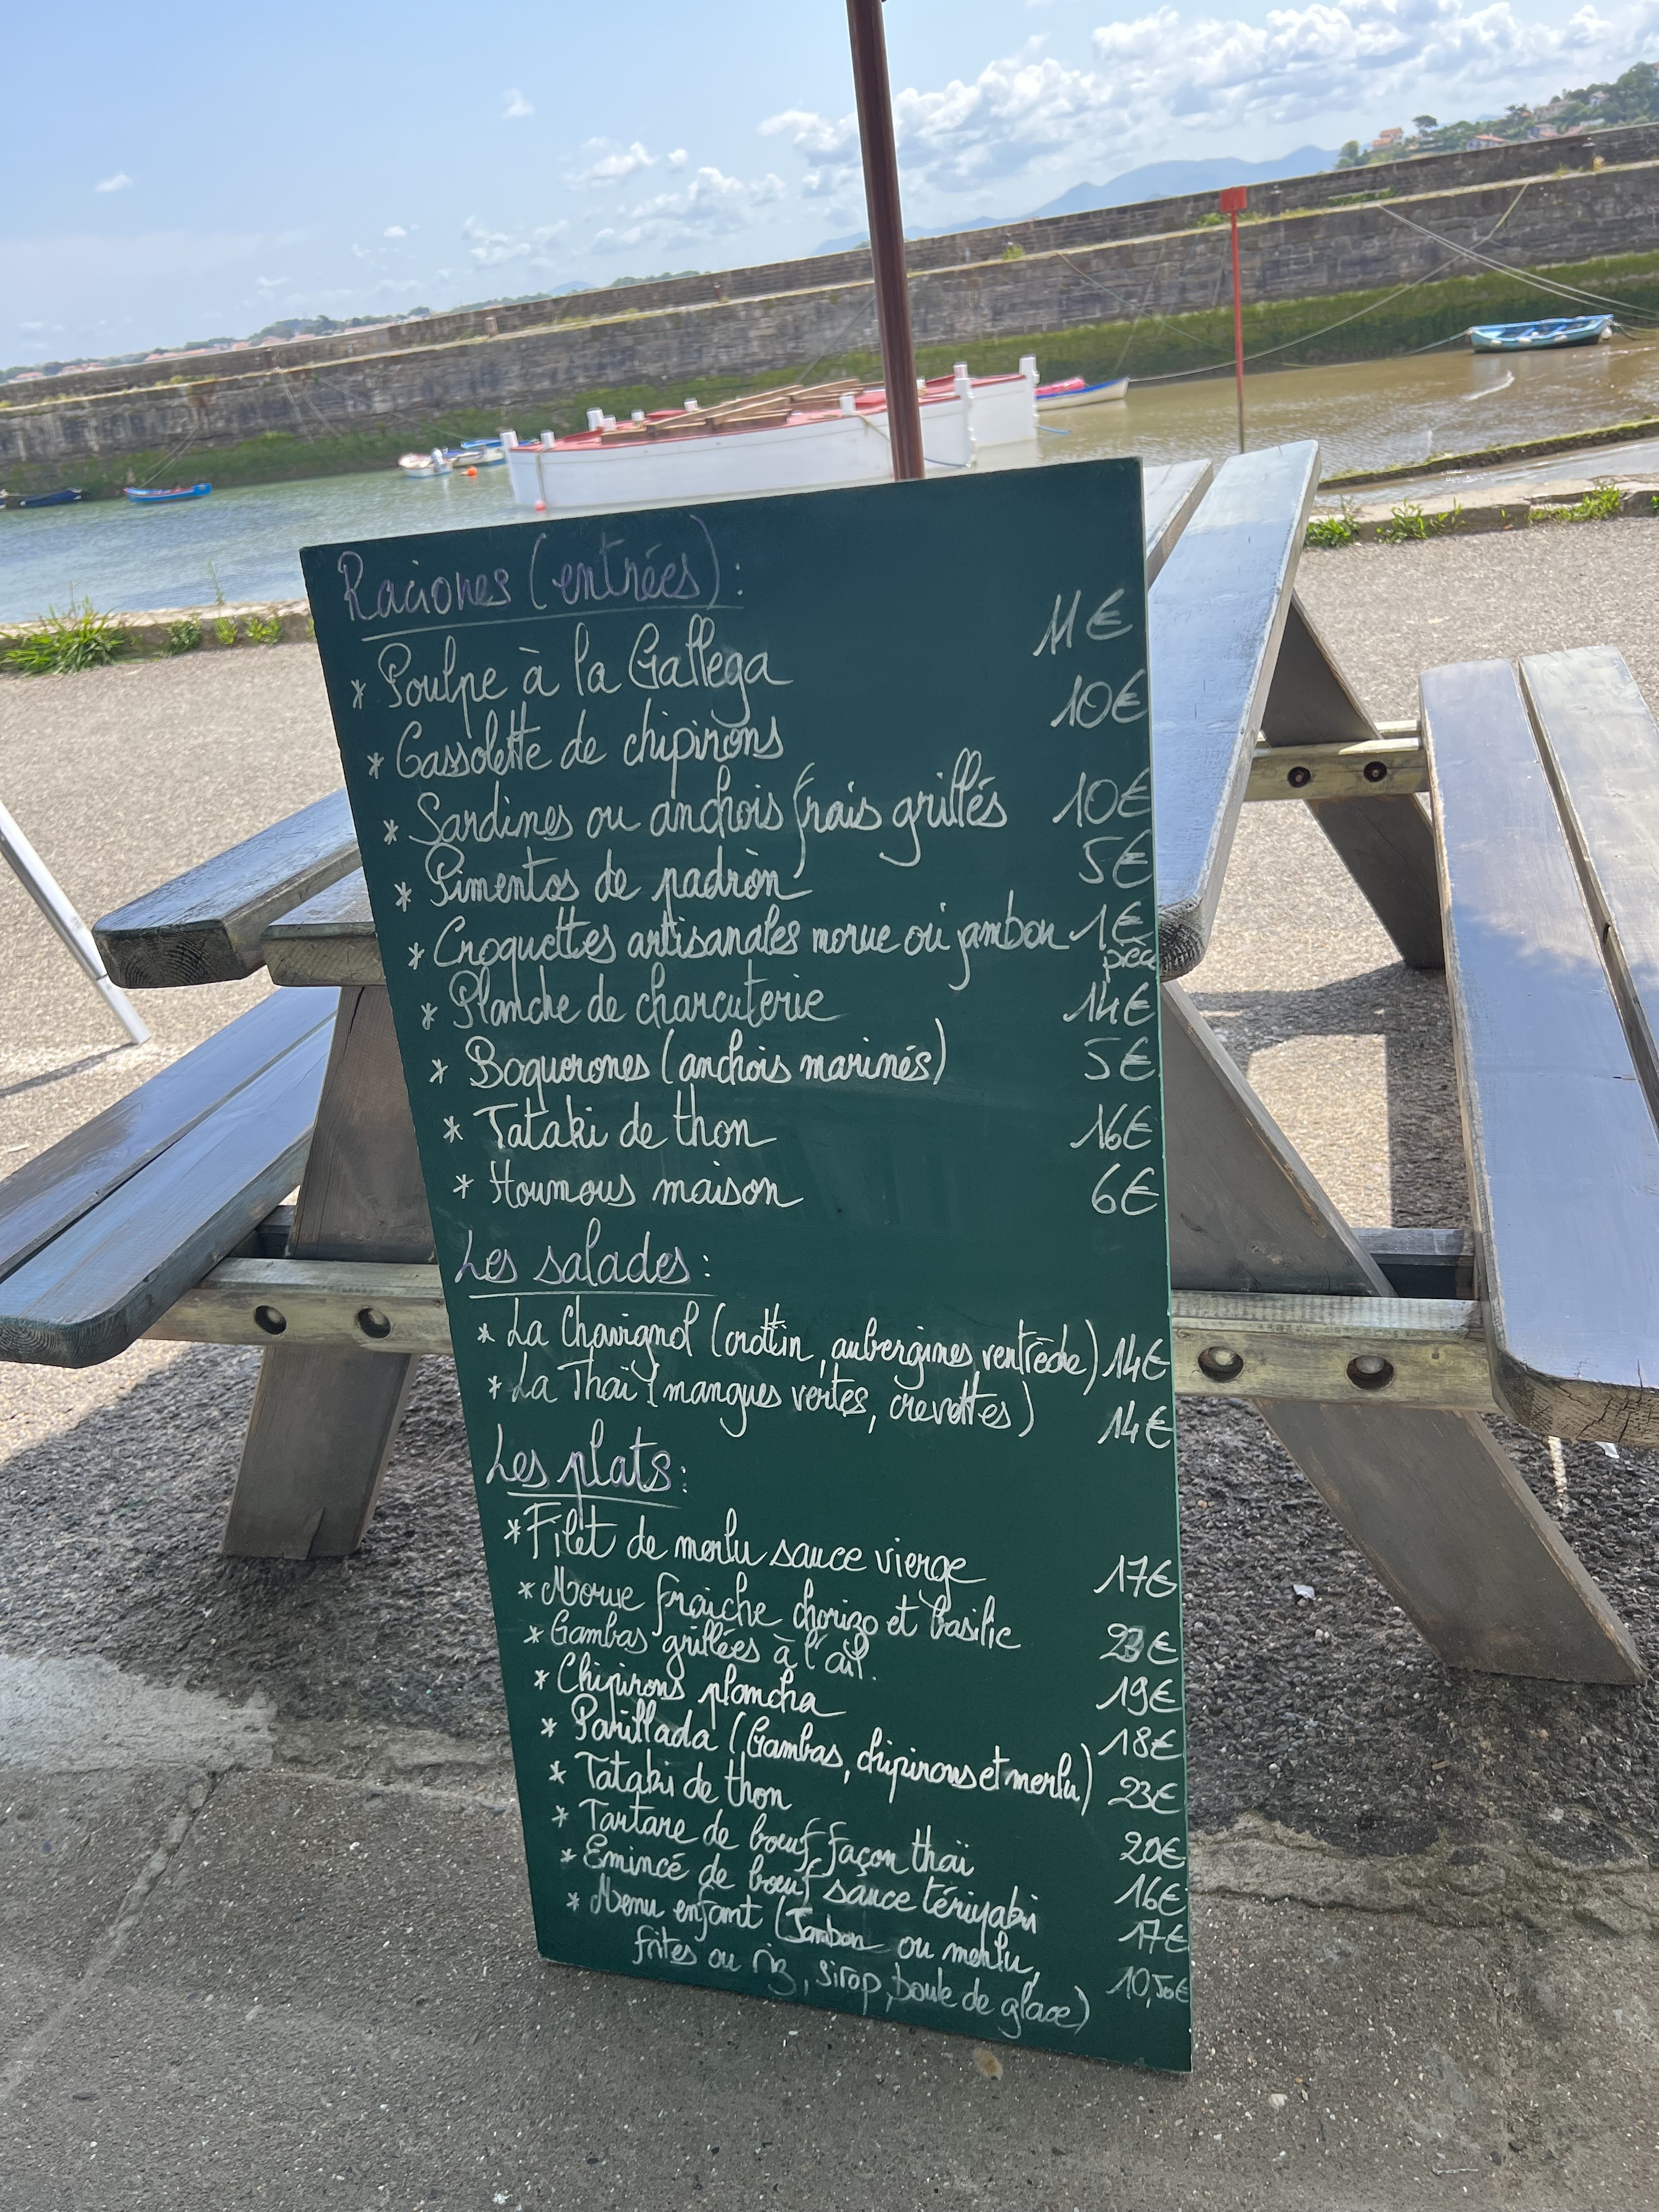 Raciones (entrées) :
* Poulpe à la Gallega 11€
* Cassolette de chipirons 10€
* Sardines ou anchois frais grillés 10€
* Pimentos de padròn 5€
* Croquettes artisanales morue ou jambon 1€
pièce
* Planche de charcuterie 14€
* Boquerones (anchois marinés) 5€
* Tataki de thon 16€
* Houmous maison 6€
Les salades :
* La Chavignol (crottin, aubergines ventrèche) 14€
* La Thaï (mangues vertes, crevettes) 14€
Les plats :
* Filet de merlu sauce vierge 17€
* Morue fraîche chorizo et basilic 23€
* Gambas grillées à l'ail. 19€
* Chipirons plancha 18€
* Parillada (Gambas, chipirons et merlu) 23€
* Tataki de thon 20€
* Tartare de bœuf façon thaï 16€
* Emincé de bœuf sauce tériyaki 17€
* Menu enfant (Jambon ou merlu,
frites ou riz, sirop, boule de glace) 10,50€